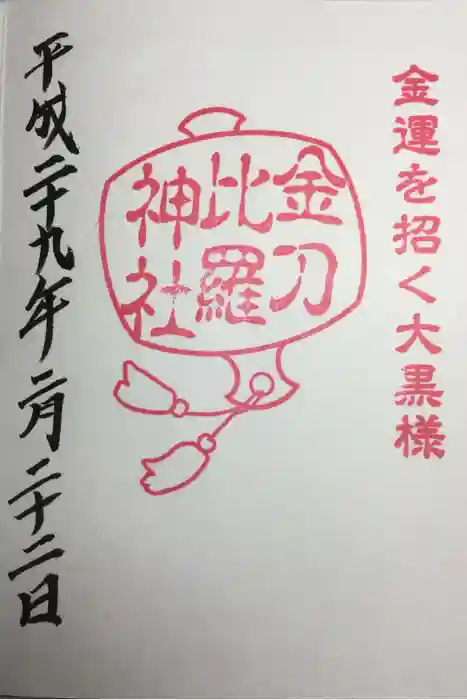 金運を招く大黒様
金刀
比羅
神社
平成二十九年二月二十二日